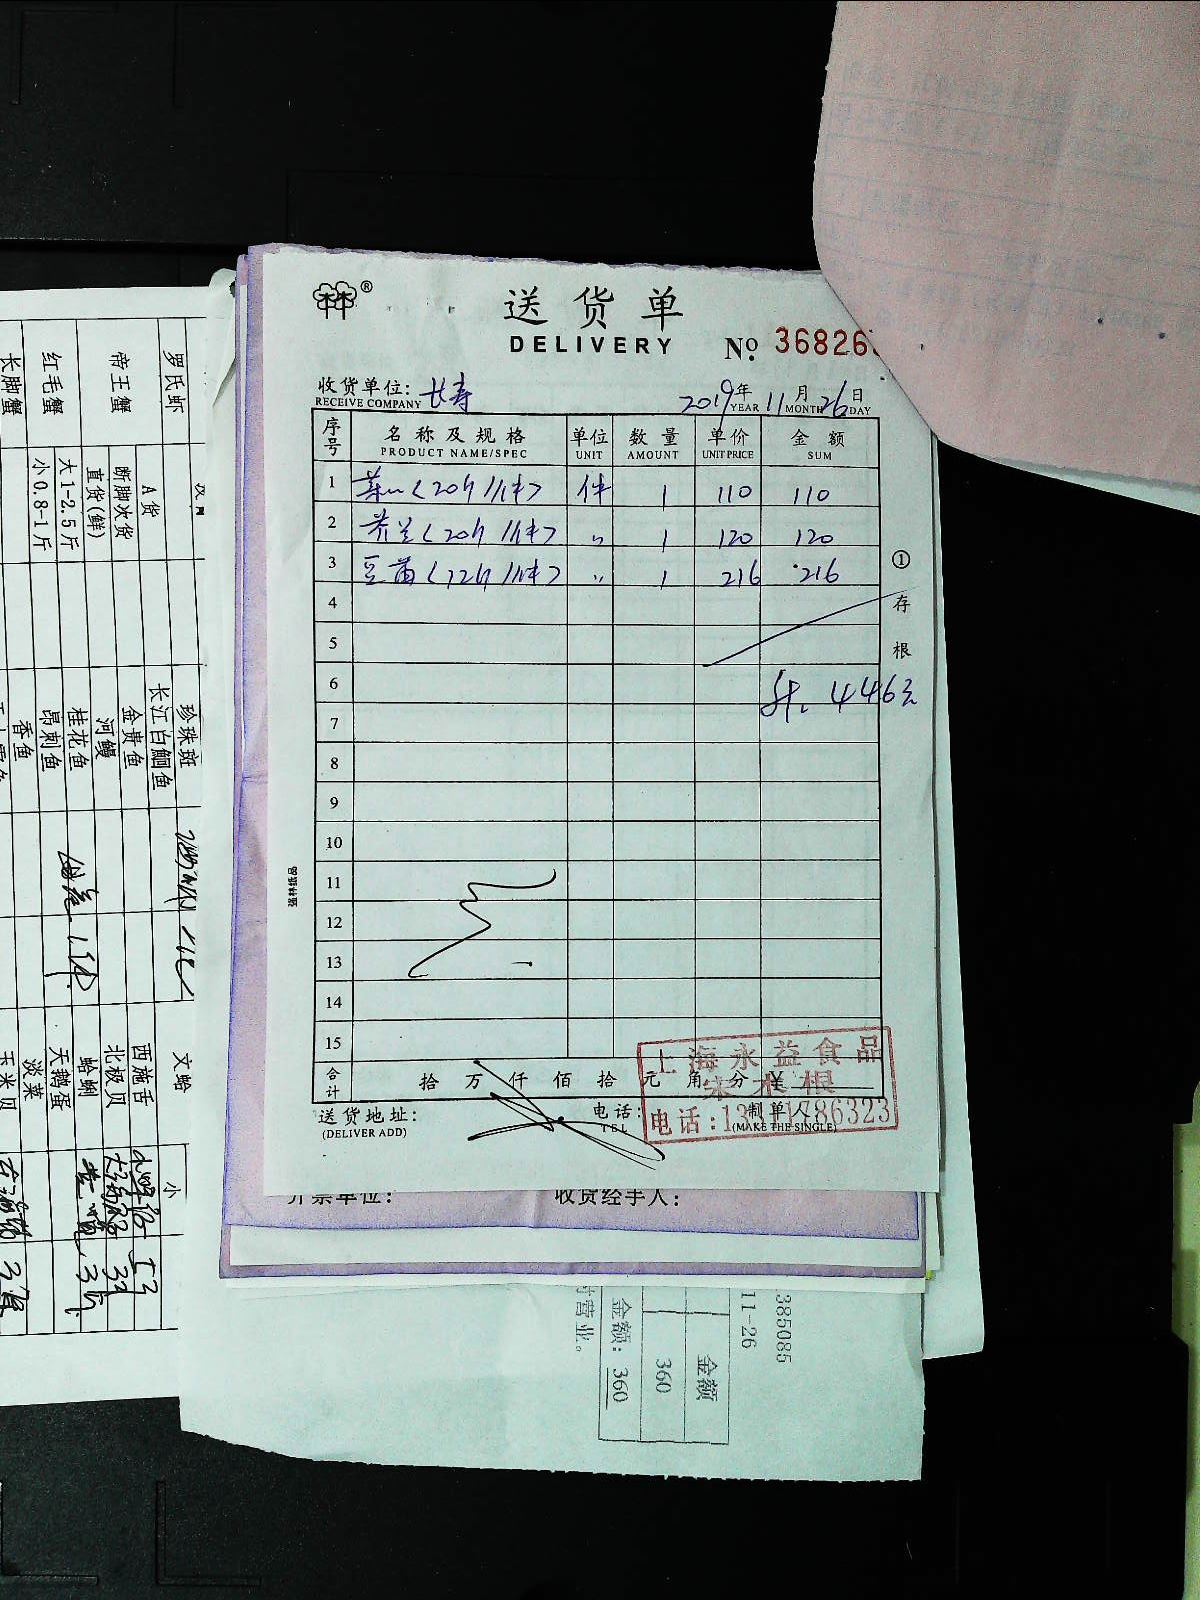 ®
送货单
DELIVERY
№ 36826
收货单位: 长寿
RECEIVE COMPANY
2019年 11月 26日
YEAR MONTH DAY
序号 名称及规格 单位 数量 单价 金额
PRODUCT NAME/SPEC UNIT AMOUNT UNIT PRICE SUM
1 件 1 110 110
2 芥兰<20斤/件> 〃 1 120 120
3 豆苗<12斤/件> 〃 1 216 216
4
5
6
446元
7
8
9
10
11
12
13
14
15
合计 拾 万 仟 佰 拾 元 角 分 ¥
送货地址: 电话: 制单人
(DELIVER ADD) TEL (MAKE THE SINGLE)
上海永益食品
宋木根
电话:13 1786323
①存根
强林纸品
开票单位: 收货经手人:
385085
11-26
金额
360
金额: 360
时营业。
罗氏虾
帝王蟹
红毛蟹
长脚蟹
A货
断脚次货
直货(鲜)
大1-2.5斤
小0.8-1斤
珍珠斑
长江白鮰鱼
金贵鱼
河鳗
桂花鱼
昂刺鱼
香鱼
文蛤
西施舌
北极贝
蛤蜊
天鹅蛋
淡菜
玉米贝
小